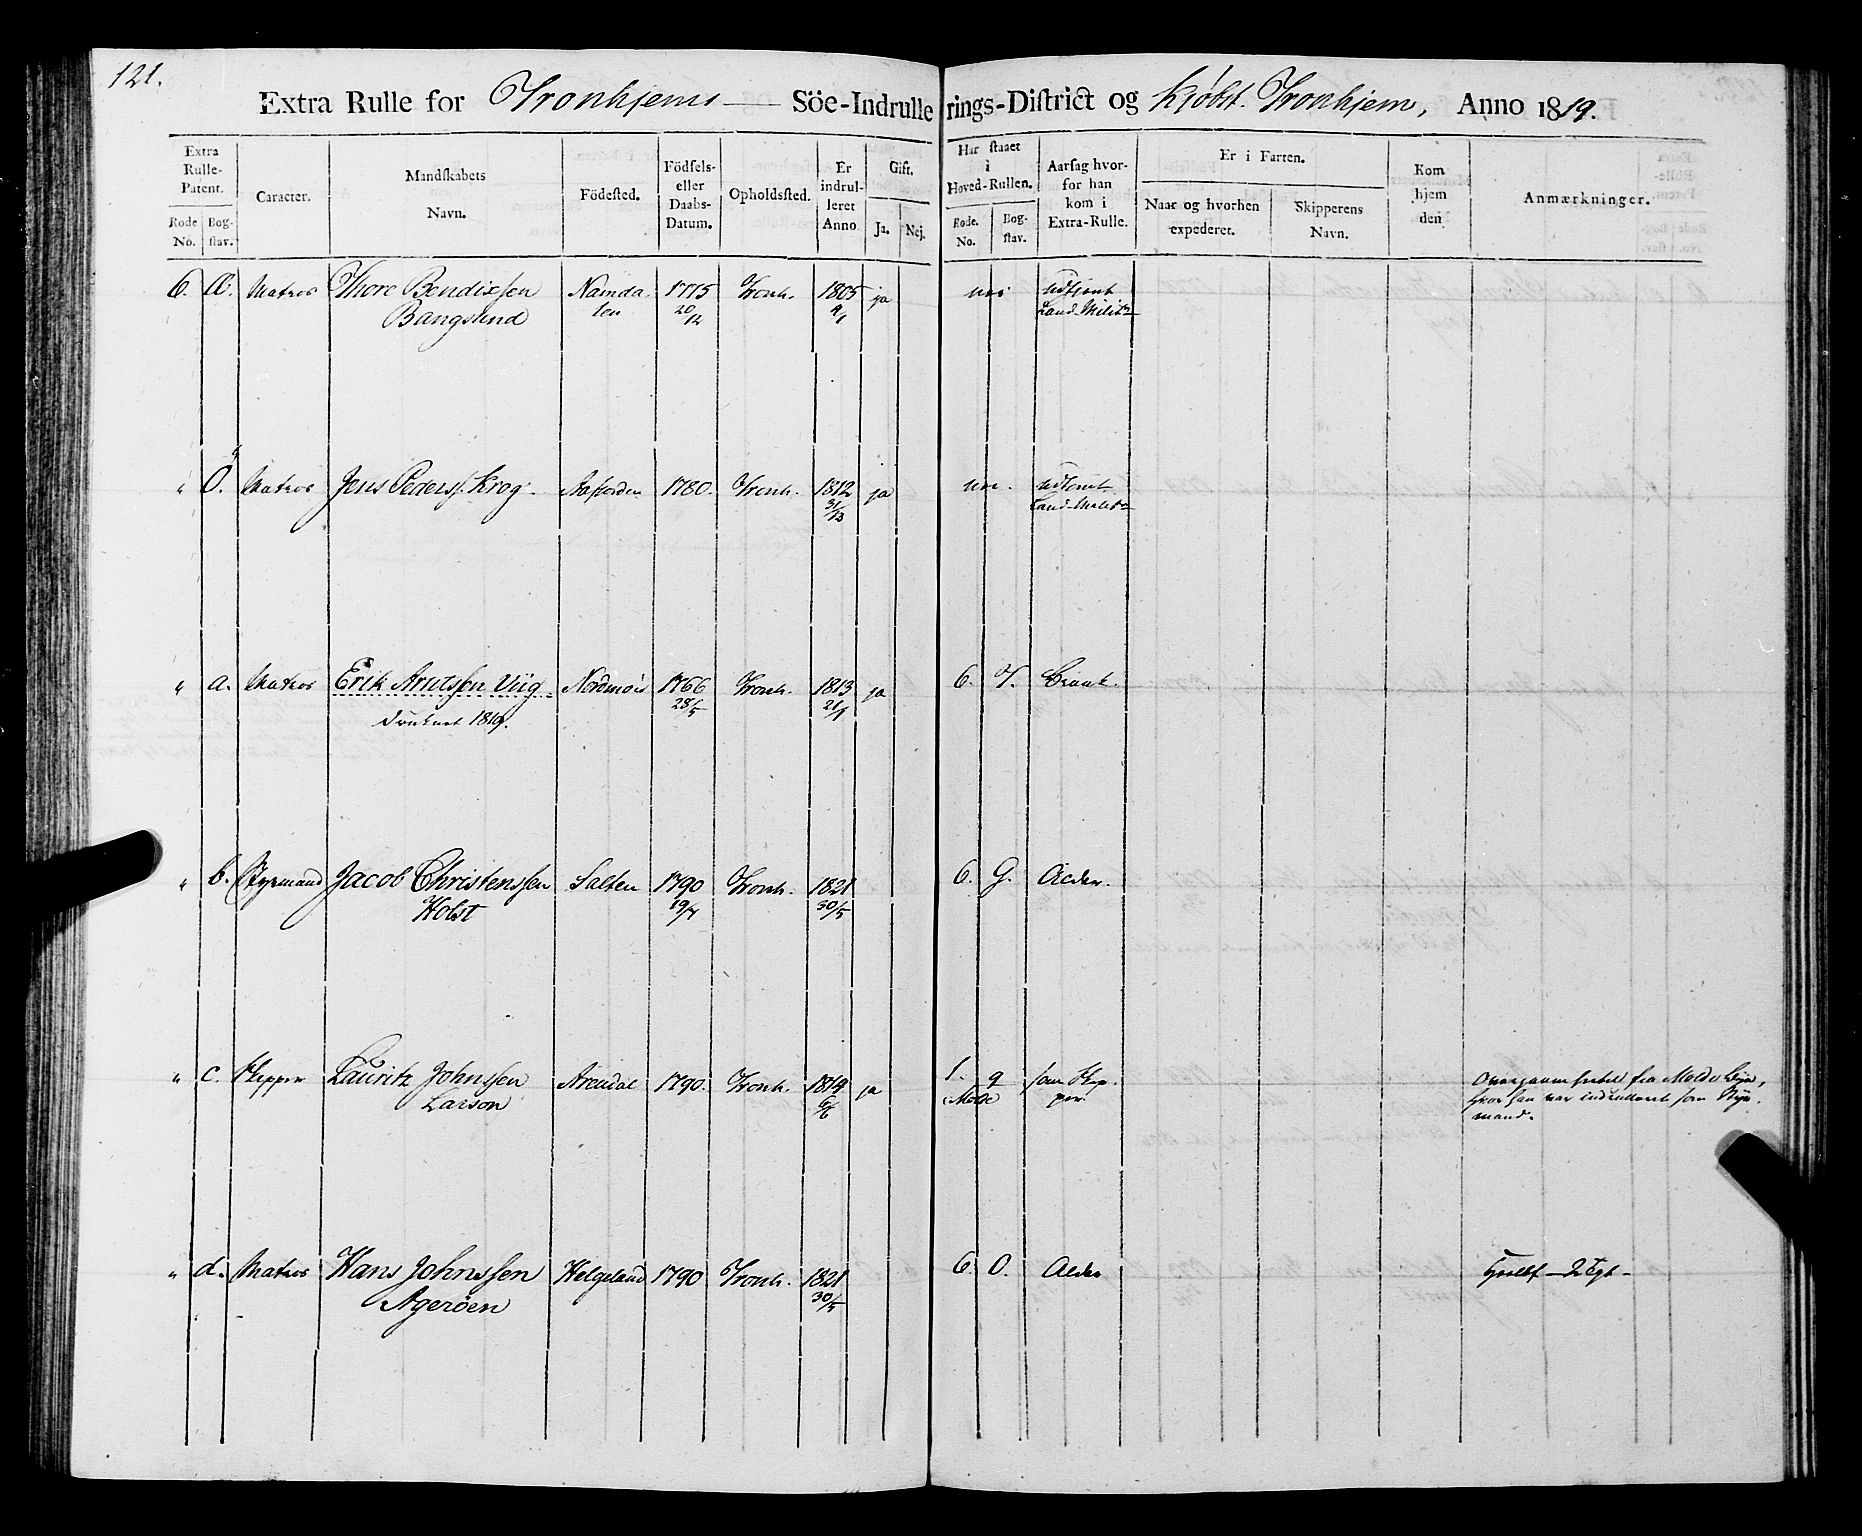 121.
Extra Rulle for Tronhjems — Söe-Indrullerings-District og Kjöbst. Tronhjem, Anno 1819.
Extra Rulle-Patent. Caracter. Mandskabets Navn. Födested. Födsels- eller Daabs-Datum. Opholdsted. Er indrulleret Anno Gift. Har staaet i Hoved-Rullen. Aarsag hvorfor han kom i Extra-Rulle. Er i Farten. Kom hjem den Anmærkninger.
Rode No. Bogstav. Ja. Nej. Rode. No. Bogstav. Naar og hvorhen expederet. Skipperens Navn.
6. Æ. Matros Thore Bendixsen Namda 1775 Tronh. 1805 ja udtjent
Bangslund len 20/12 9/1 Land-Milits
" Ö. Matros Jens Pederss. Krog. Aafjorden 1780. Tronh. 1812 ja udtjent
31/13 Land-Milits
" a. Matros Erik Arntssen Viig Nordmör 1766 Tronh. 1813 ja 6. T. Svank.
druknet 1819. 28/5 21/1
" b. Styrmand Jacob Christenssen Salten 1790 Tronh. 1821 6. G. Alder.
Holst 19/4 30/5
" c. Skipper Lauritz Johnssen Arendal 1790. Tronh. 1819 ja 1. q som Skip Overgaaen fra Molde Bye,
Larson 6/6 Molde per. hvor han var indrulleret som Styr
mand.
" d. Matros Hans Johnssen Helgeland 1790 Tronh. 1821 6. O. Alder
Ageröen 30/5